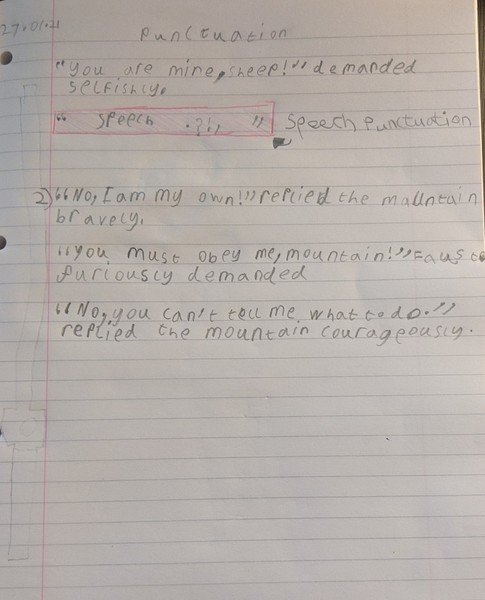 27.01.21
Punctuation
"you are mine, sheep!" demanded
selfishly.
" Speech .?!, " Speech Punctuation
2) "No, I am my own!" replied the mauntain
bravely.
"you must obey me, mountain!" Faus to
furiously demanded
"No, you can't tell me what to do."
replied the mountain courageously.